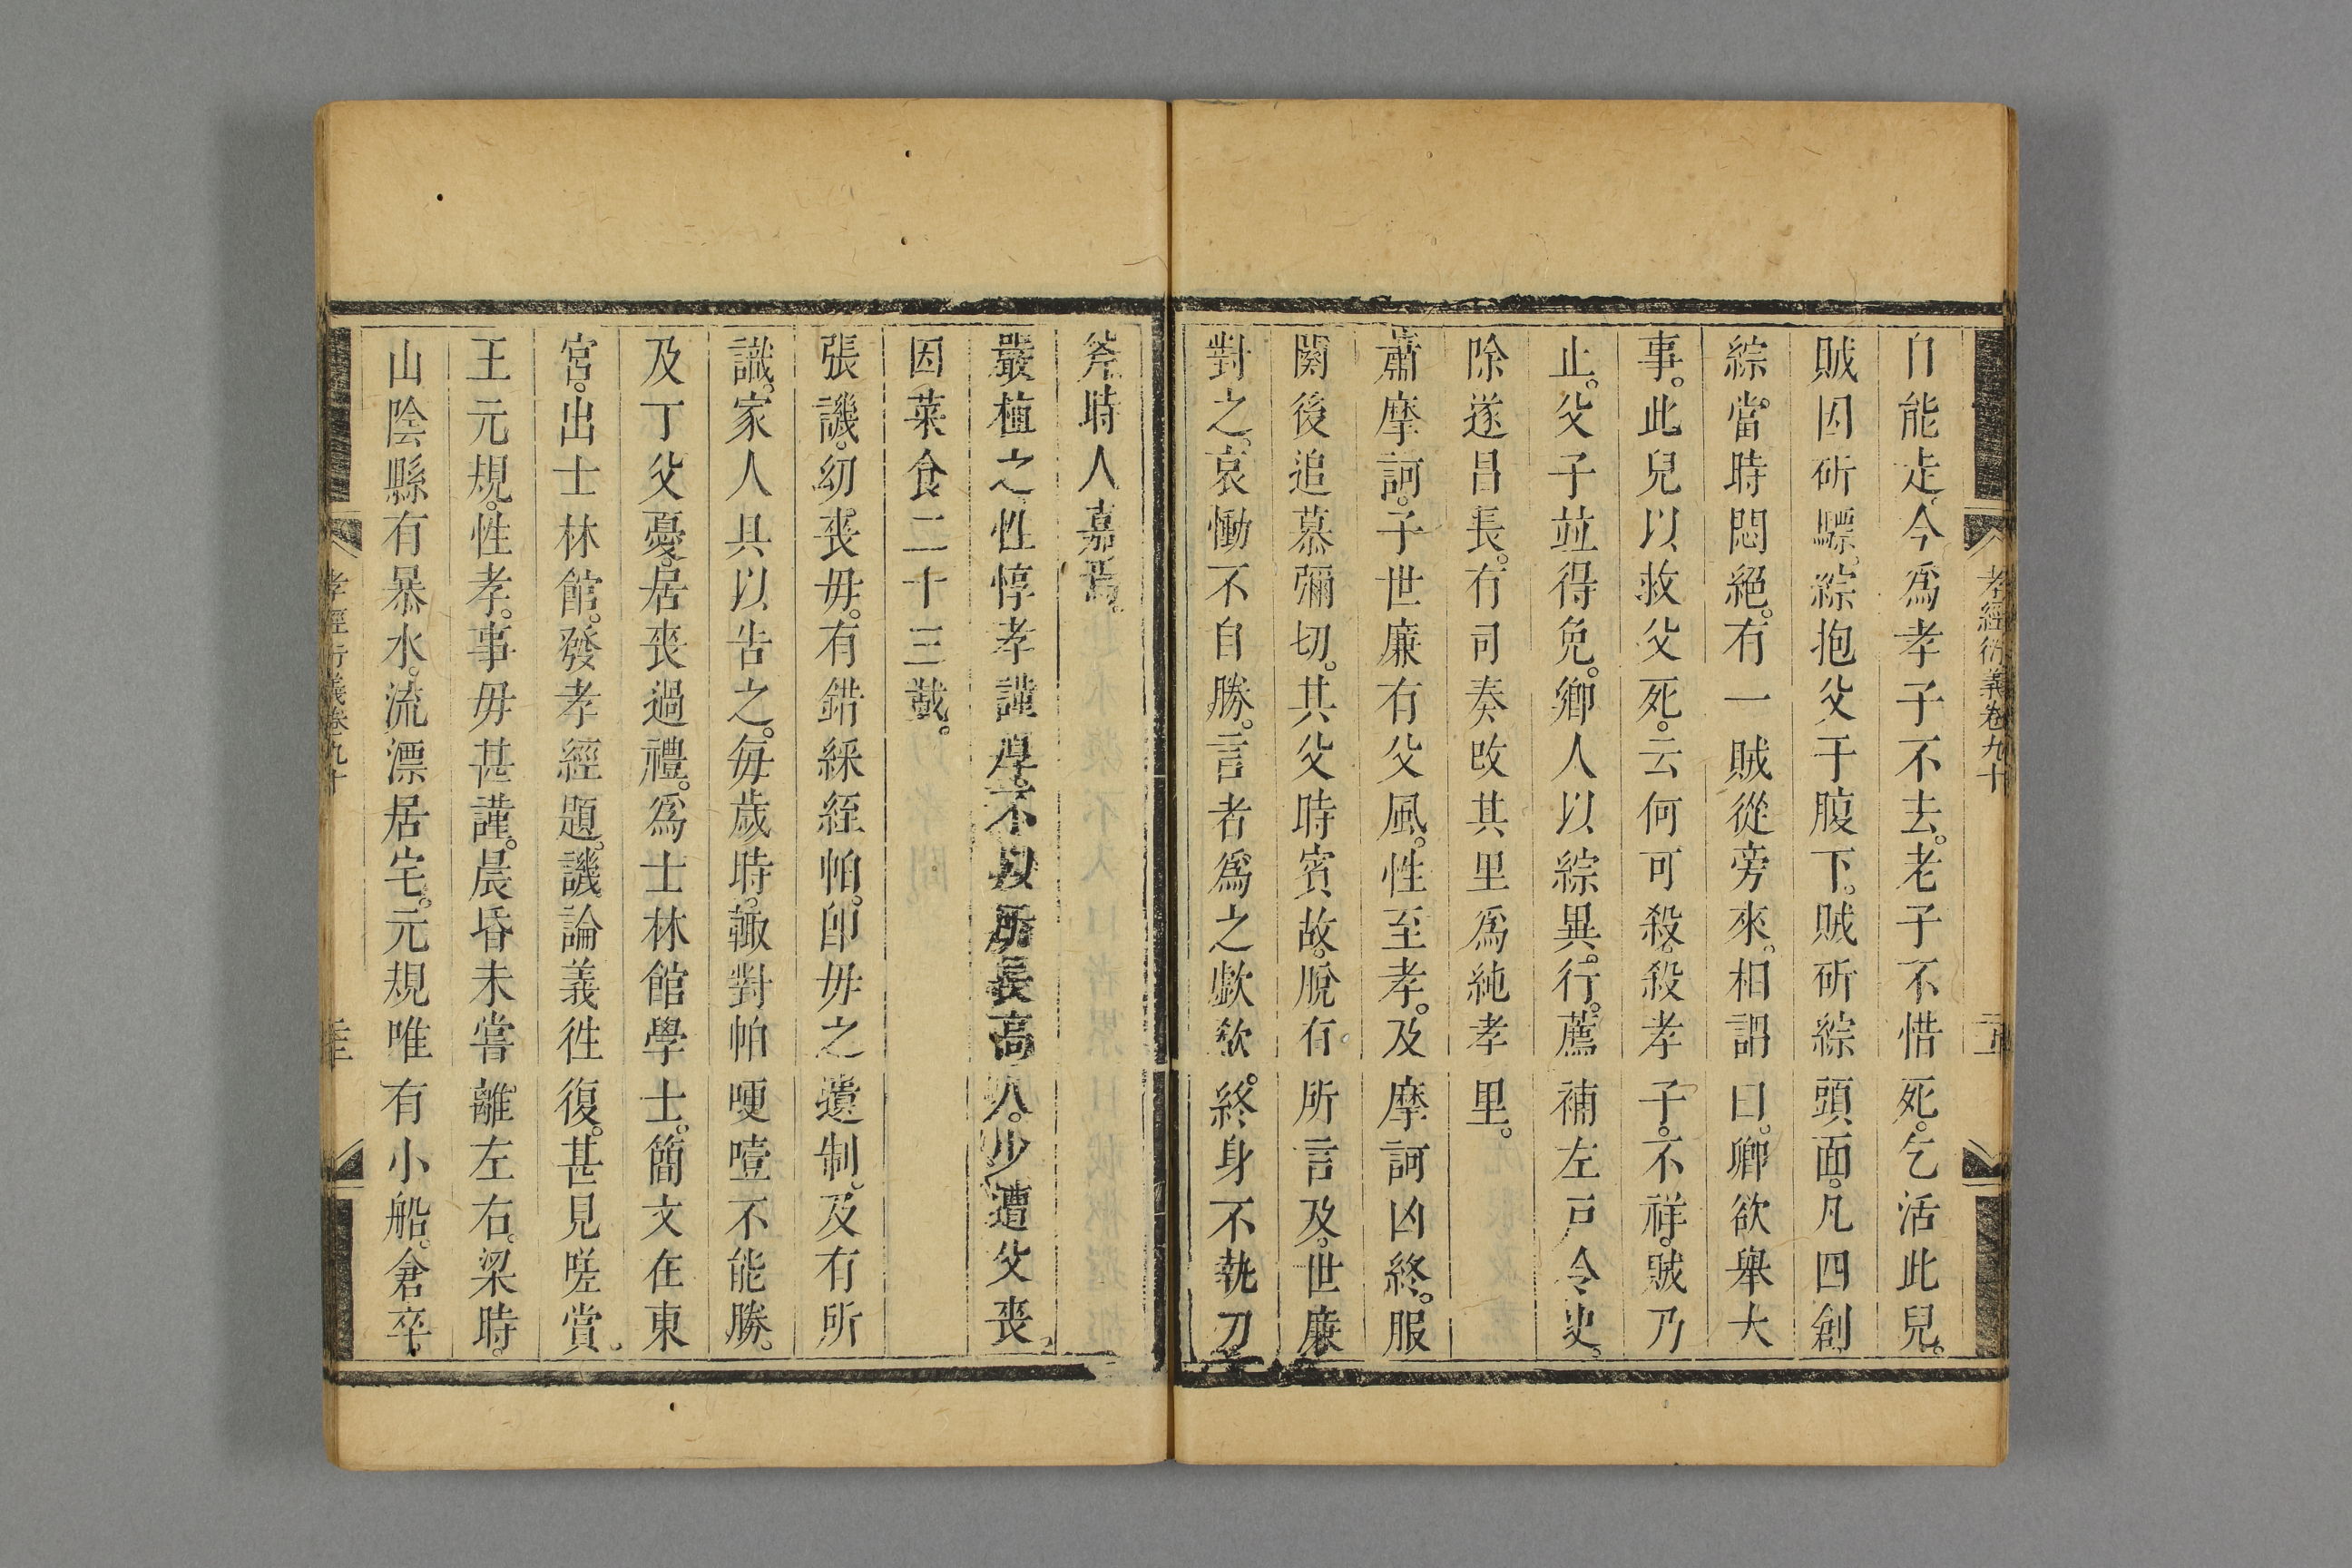 自能走。今爲孝子不去。老子不惜死。乞活此兒。
賊因斫驃。綜抱父于腹下。賊斫綜頭面。凡四創
綜。當時悶絕。有一賊從旁來。相謂曰。卿欲舉大
事。此兒以救父死。云何可殺。殺孝子。不祥。賊乃
止。父子並得免。鄉人以綜異。行。薦補左戸令史。
除遂昌長。有司奏改其里爲純孝里。
蕭摩訶。子世廉有父風。性至孝。及摩訶凶終。服
闋後追慕彌切。其父時賓故。脫有所言及。世廉
對之。哀慟不自勝。言者爲之歔欷。終身不執刀
孝經衍義卷九十
斧。時人嘉焉。
嚴植之性惇孝謹厚。不以所長高人。少遭父喪。
因菜食二十三載。
張譏。幼。喪毋。有錯綵經帕。卽毋之遺制。及有所
識。家人具以告之。每歲時。輙對帕哽噎不能勝。
及丁父憂。居喪過禮。爲士林館學士。簡文在東
宮。出士林館。發孝經題。譏。論義徃復。甚見嗟賞。
王元規。性孝。事毋甚謹。晨昏未嘗離左右。梁時。
山陰縣有暴水。流漂居宅。元規唯有小船。倉卒。
孝經衍義卷九十